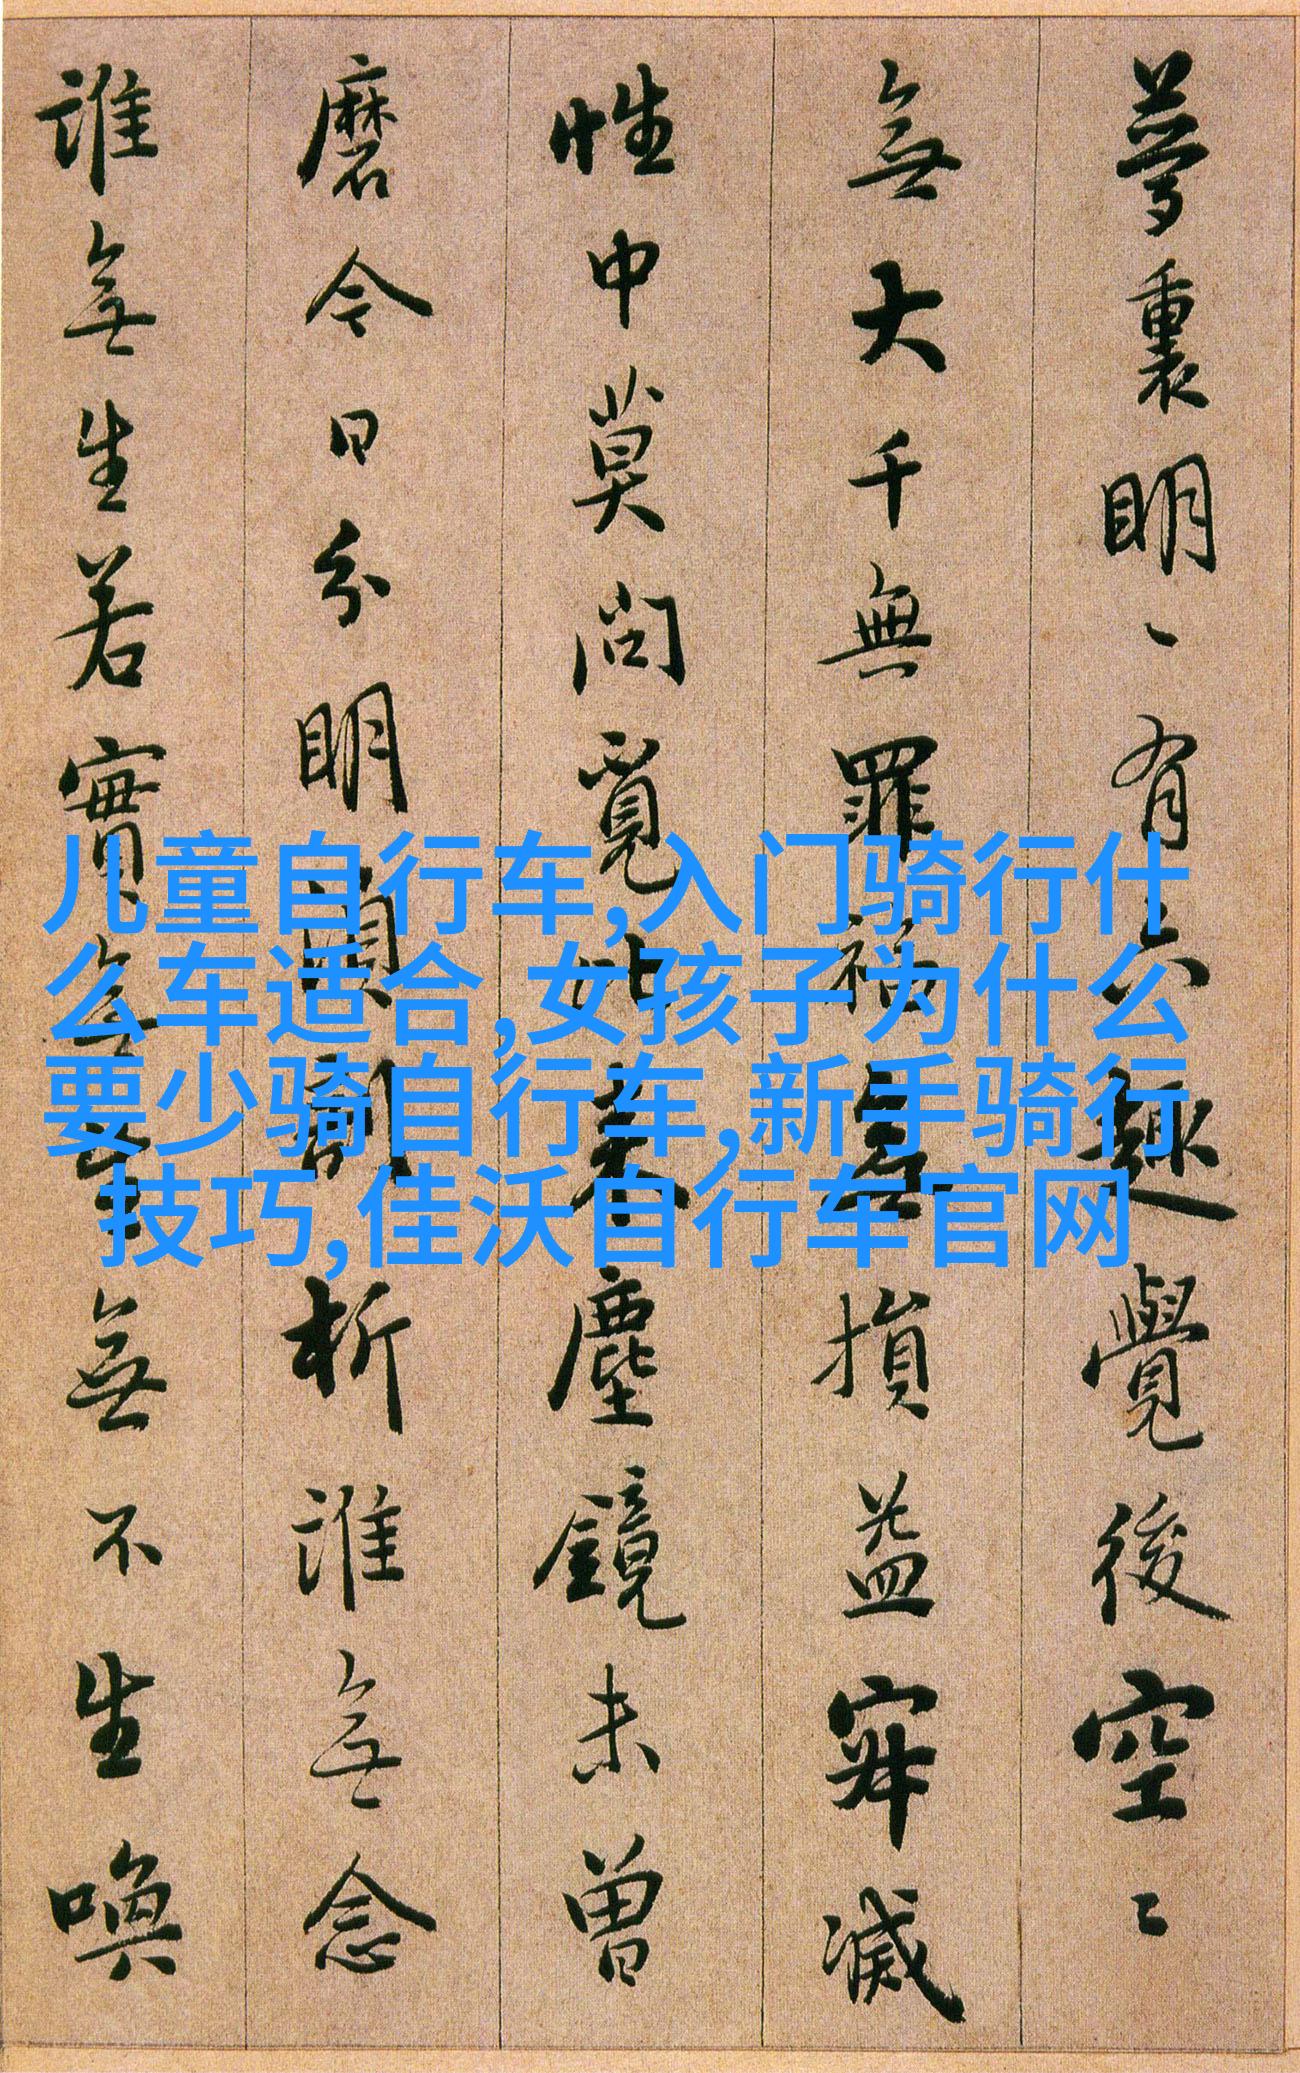 夢裏明〻有六趣覺後空〻
無大千無罪福無損益寂滅
性中莫問覓比來塵鏡未曾
磨今日分明須剖析誰無念
誰無生若實無生無不生喚
儿童自行车,入门骑行什
么车适合,女孩子为什么
要少骑自行车,新手骑行
技巧,佳沃自行车官网